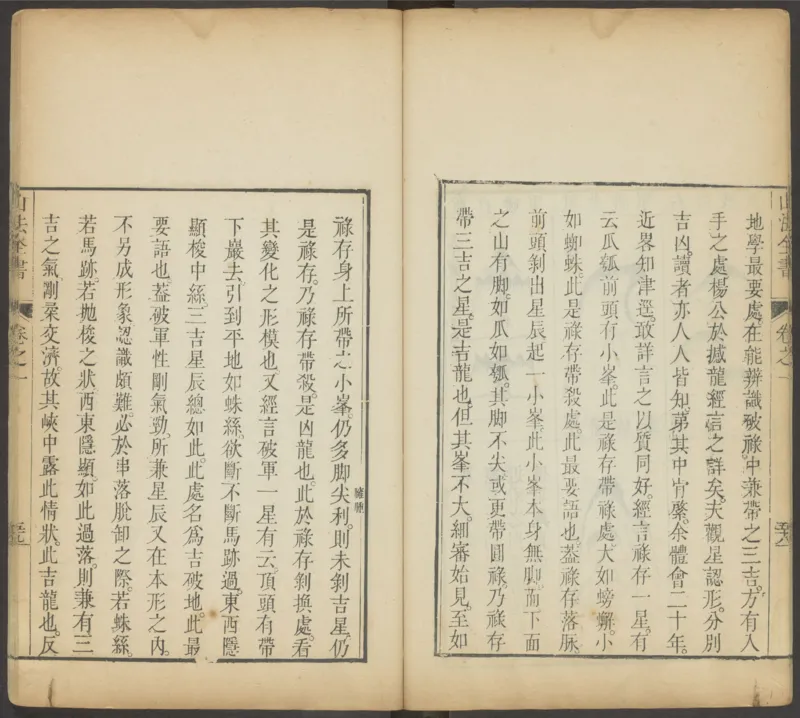 地學最要處。在能辨識破祿。中兼帶之三吉。方有入
手之處。楊公於撼龍經言之詳矣。夫觀星認形。分別
吉凶。讀者亦人人皆知。第其中肯綮。余體會二十年。
近畧知津逕。敢詳言之以質同好。經言祿存一星。有
云瓜瓠前頭有小峯。此是祿存帶祿處。大如螃蠏。小
如蜘蛛。此是祿存帶殺處。此最要語也。葢祿存落脉。
前頭剝出星辰。起一小峯。此小峯本身無脚。而下面
之山有脚。如瓜如瓠。其脚不尖。或更帶圓祿。乃祿存
帶三吉之星。是吉龍也。但其峯不大。細審始見。至如
祿存身上所帶之小峯。仍多脚尖利。則未剝吉星。仍
是祿存。乃祿存帶殺。是凶龍也。此於祿存剝換處。看
其變化之形模也。又經言破軍一星有云。頂頭有帶
下巖去。引到平地如蛛絲。欲斷不斷馬跡過。東西隱
顯梭中絲。三吉星辰總如此。此處名爲吉破地。此最
要語也。葢破軍性剛氣勁。所兼星辰又在本形之內。
不另成形象。認識頗難。必於串落脫卸之際。若蛛絲。
若馬跡。若拋梭之狀。西東隱顯。如此過落。則兼有三
吉之氣。剛柔交濟。故其峽中露此情狀。此吉龍也。反
山法全書
卷之一